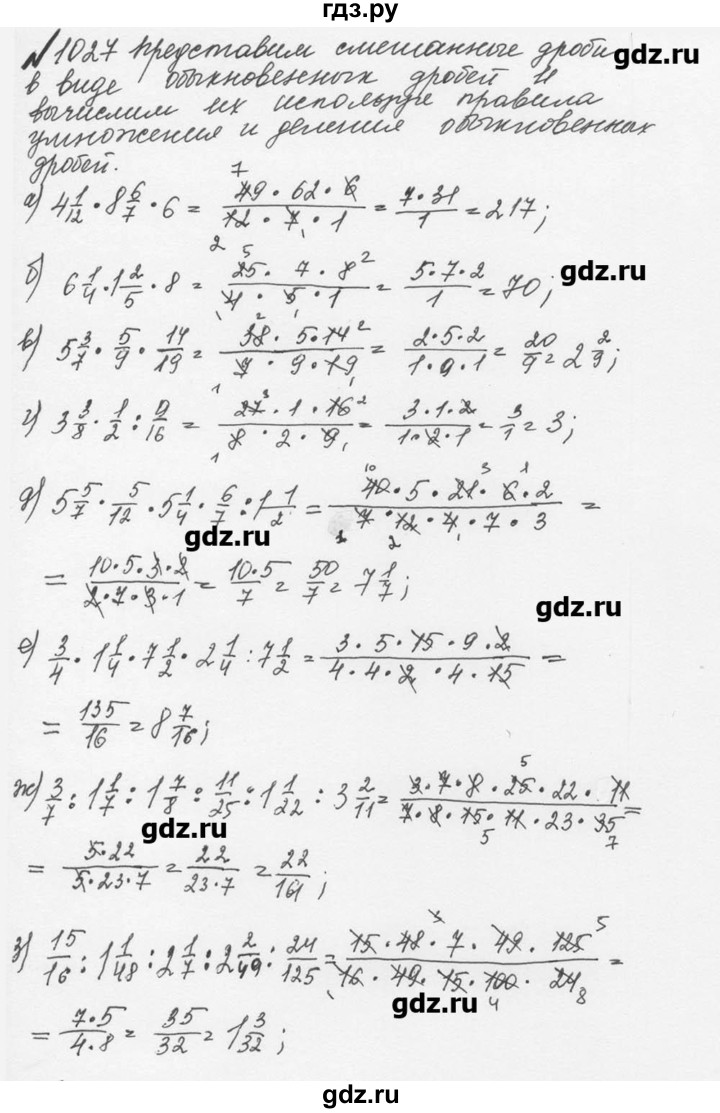 гдз.ру
№1027 Представим смешанные дроби
в виде обыкновенных дробей и
вычислим их используя правила
умножения и деления обыкновенных
дробей.
а) 4 1/12 · 8 6/7 · 6 = (49 · 62 · 6)/(12 · 7 · 1) = (7 · 31)/1 = 217;
б) 6 1/4 · 1 2/5 · 8 = (25 · 7 · 8)/(4 · 5 · 1) = (5·7·2)/1 = 70;
в) 5 3/7 · 5/9 · 14/19 = (38 · 5·14)/(7 · 9 · 19) = (2·5·2)/(1·9·1) = 20/9 = 2 2/9;
г) 3 3/8 · 1/2 : 9/16 = (27 · 1 · 16)/(8 · 2 · 9) = (3·1·2)/(1·2·1) = 3/1 = 3;
д) 5 5/7 · 5/12 · 5 1/4 · 6/7 : 1 1/2 = (40 · 5 · 21 · 6 · 2)/(7 · 12 · 4 · 7 · 3) =
= (10·5·3·2)/(2·7·3·1) = (10·5)/7 = 50/7 = 7 1/7;
е) 3/4 · 1 1/4 · 7 1/2 · 2 1/4 : 7 1/2 = (3 · 5 · 15 · 9 · 2)/(4 · 4 · 2 · 4 · 15) =
= 135/16 = 8 7/16;
ж) 3/7 : 1 1/7 : 1 7/8 : 11/25 : 1 1/22 : 3 2/11 = (3·7·8·25·22·11)/(7·8·15·11·23·35) =
= (5·22)/(5·23·7) = 22/(23·7) = 22/161;
з) 15/16 : 1 1/48 : 2 1/7 : 2 2/49 : 24/125 = (15·48·7·49·125)/(16·49·15·100·24) =
= (7·5)/(4·8) = 35/32 = 1 3/32;
gdz.ru
gdz.ru
gdz.ru
gdz.ru
gdz.ru
gdz.ru
gdz.ru
gdz.ru